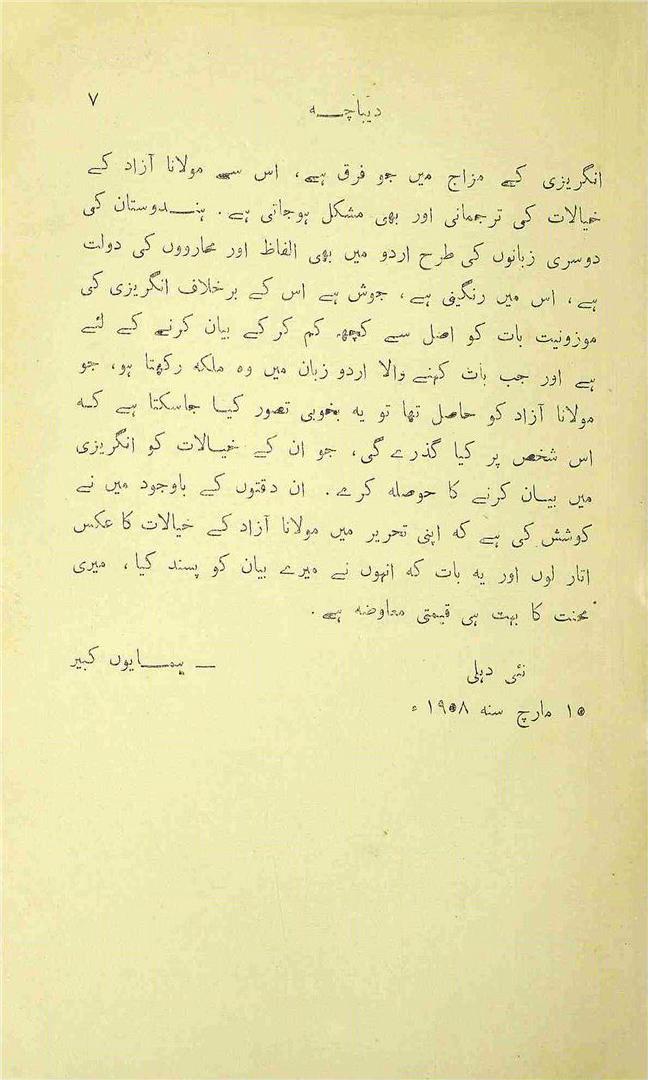 دیباچہ ۷
انگریزی کے مزاج میں جو فرق ہے، اس سے مولانا آزاد کے
خیالات کی ترجمانی اور بھی مشکل ہوجاتی ہے۔ ہندوستان کی
دوسری زبانوں کی طرح اردو میں بھی الفاظ اور محاروں کی دولت
ہے، اس میں رنگینی ہے، جوش ہے اس کے برخلاف انگریزی کی
موزونیت بات کو اصل سے کچھ کم کرکے بیان کرنے کے لئے
ہے اور جب بات کہنے والا اردو زبان میں وہ ملکہ رکھتا ہو، جو
مولانا آزاد کو حاصل تھا تو یہ بخوبی تصور کیا جاسکتا ہے کہ
اس شخص پر کیا گذرے گی، جو ان کے خیالات کو انگریزی
میں بیان کرنے کا حوصلہ کرے۔ ان دقتوں کے باوجود میں نے
کوشش کی ہے کہ اپنی تحریر میں مولانا آزاد کے خیالات کا عکس
اتار لوں اور یہ بات کہ انہوں نے میرے بیان کو پسند کیا، میری
محنت کا بہت ہی قیمتی معاوضہ ہے۔
نئی دہلی — ہمایوں کبیر
۱۵ مارچ سنہ ۱۹۵۸ء